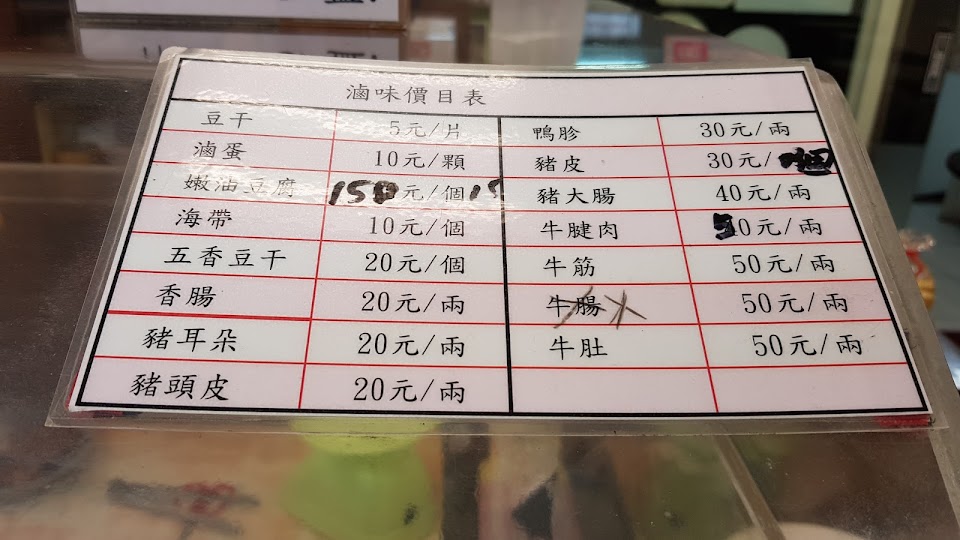 滷味價目表
豆干 5元/片
滷蛋 10元/顆
嫩油豆腐 元/個
海帶 10元/個
五香豆干 20元/個
香腸 20元/兩
豬耳朵 20元/兩
豬頭皮 20元/兩
鴨胗 30元/兩
豬皮 30元/
豬大腸 40元/兩
牛腱肉 0元/兩
牛筋 50元/兩
牛腸 50元/兩
牛肚 50元/兩